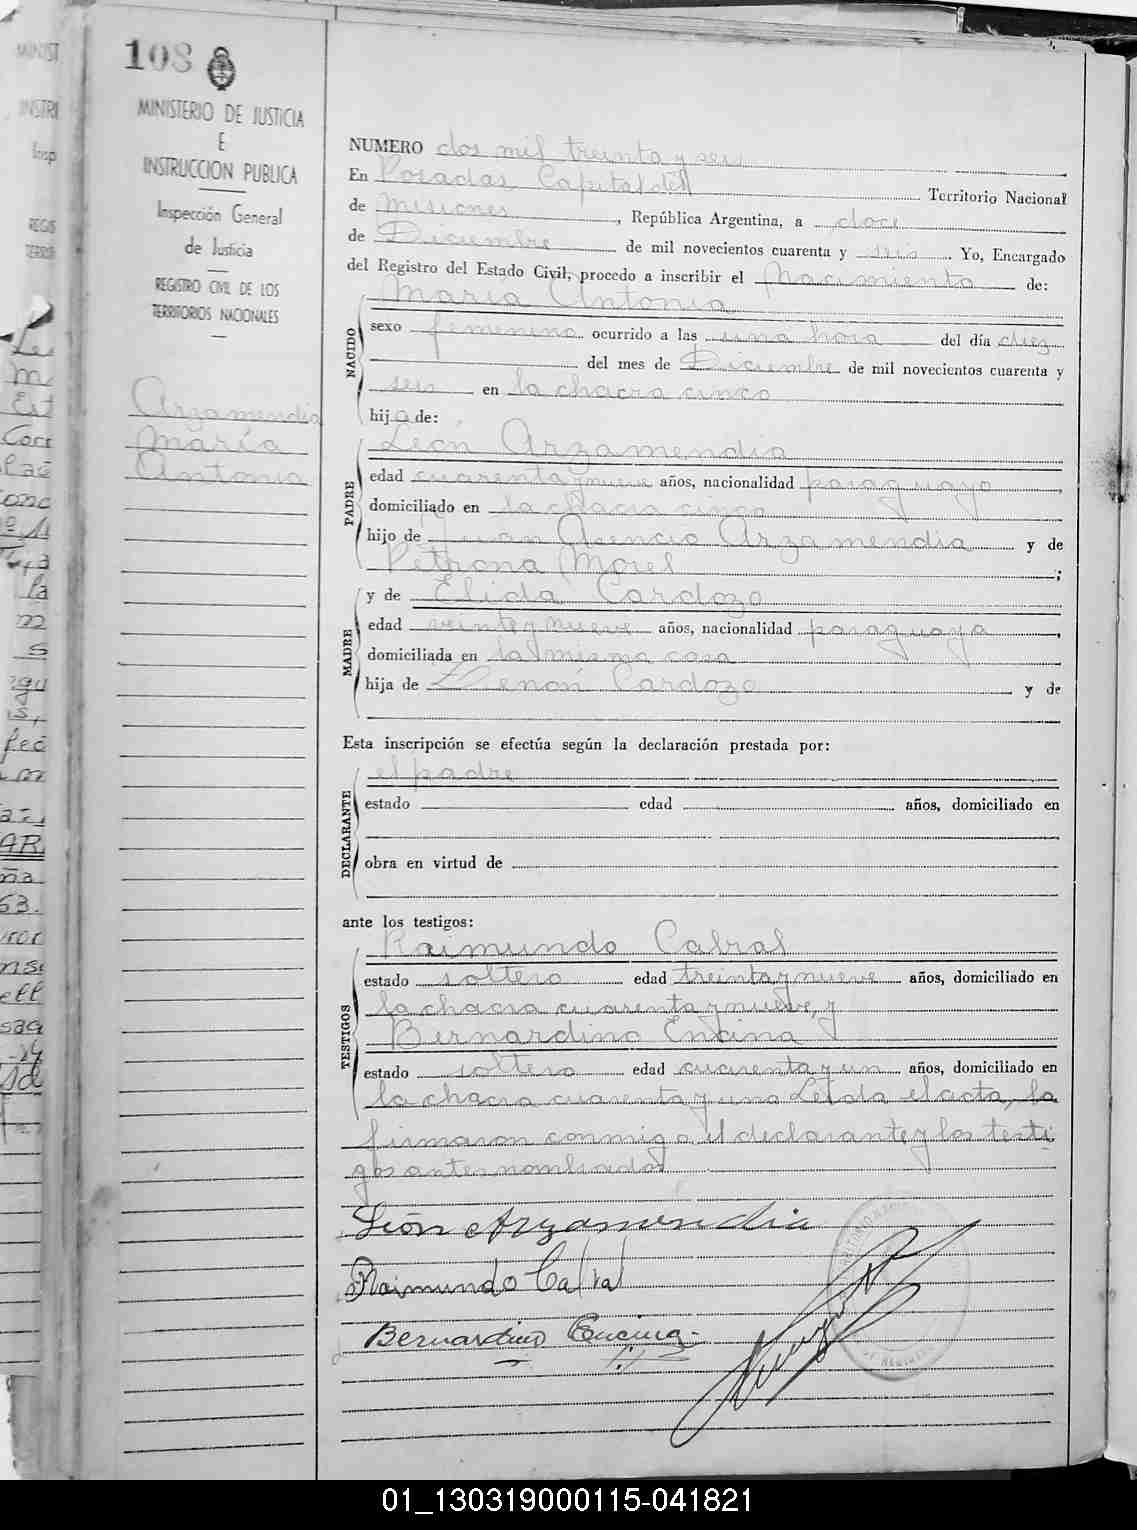 108
MINISTERIO DE JUSTICIA
E
INSTRUCCION PUBLICA
Inspección General
de Justicia
REGISTRO CIVIL DE LOS
TERRITORIOS NACIONALES
Arzamendia
María
Antonia
NUMERO dos mil treinta y seis
En Posadas Capital del Territorio Nacional
de Misiones, República Argentina, a doce
de Diciembre de mil novecientos cuarenta y seis. Yo, Encargado
del Registro del Estado Civil, procedo a inscribir el Nacimiento de:
NACIDO
María Antonia
sexo femenino ocurrido a las una hora del día diez
del mes de Diciembre de mil novecientos cuarenta y
seis en la chacra cinco
hija de:
PADRE
León Arzamendia
edad cuarenta y nueve años, nacionalidad paraguayo,
domiciliado en la chacra cinco
hijo de Juan Asencio Arzamendia y de
Petrona Morel;
MADRE
y de Elida Cardozo
edad veinte y nueve años, nacionalidad paraguaya,
domiciliada en la misma casa
hija de Cardozo y de
Esta inscripción se efectúa según la declaración prestada por:
DECLARANTE
el padre
estado edad años, domiciliado en
obra en virtud de
ante los testigos:
TESTIGOS
Raimundo Cabral
estado soltero edad treinta y nueve años, domiciliado en
la chacra cuarenta y nueve, y
Bernardino Encina
estado soltero edad cuarenta y un años, domiciliado en
la chacra cuarenta y uno Leída el acta, la
firmaron conmigo el declarante y los testi
gos antes nombrados
León Arzamendia
Raimundo Cabral
Bernardino Encina
01_130319000115-041821